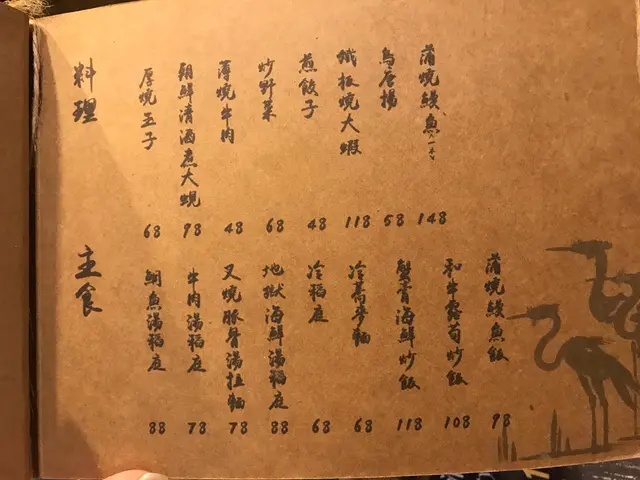 料理
蒲燒鰻魚(一个) 148
鳥唐揚 58
鐵板燒大蝦 118
煎餃子 48
炒野菜 68
薄燒牛肉 48
朝鮮清酒煮大蜆 98
厚燒玉子 68
主食
蒲燒鰻魚飯 98
和牛露荀炒飯 108
蟹膏海鮮炒飯 118
冷蕎麥麵 68
冷稻庭 68
地獄海鮮湯稻庭 88
叉燒豚骨湯拉麵 78
牛肉湯稻庭 78
鯛魚湯稻庭 88